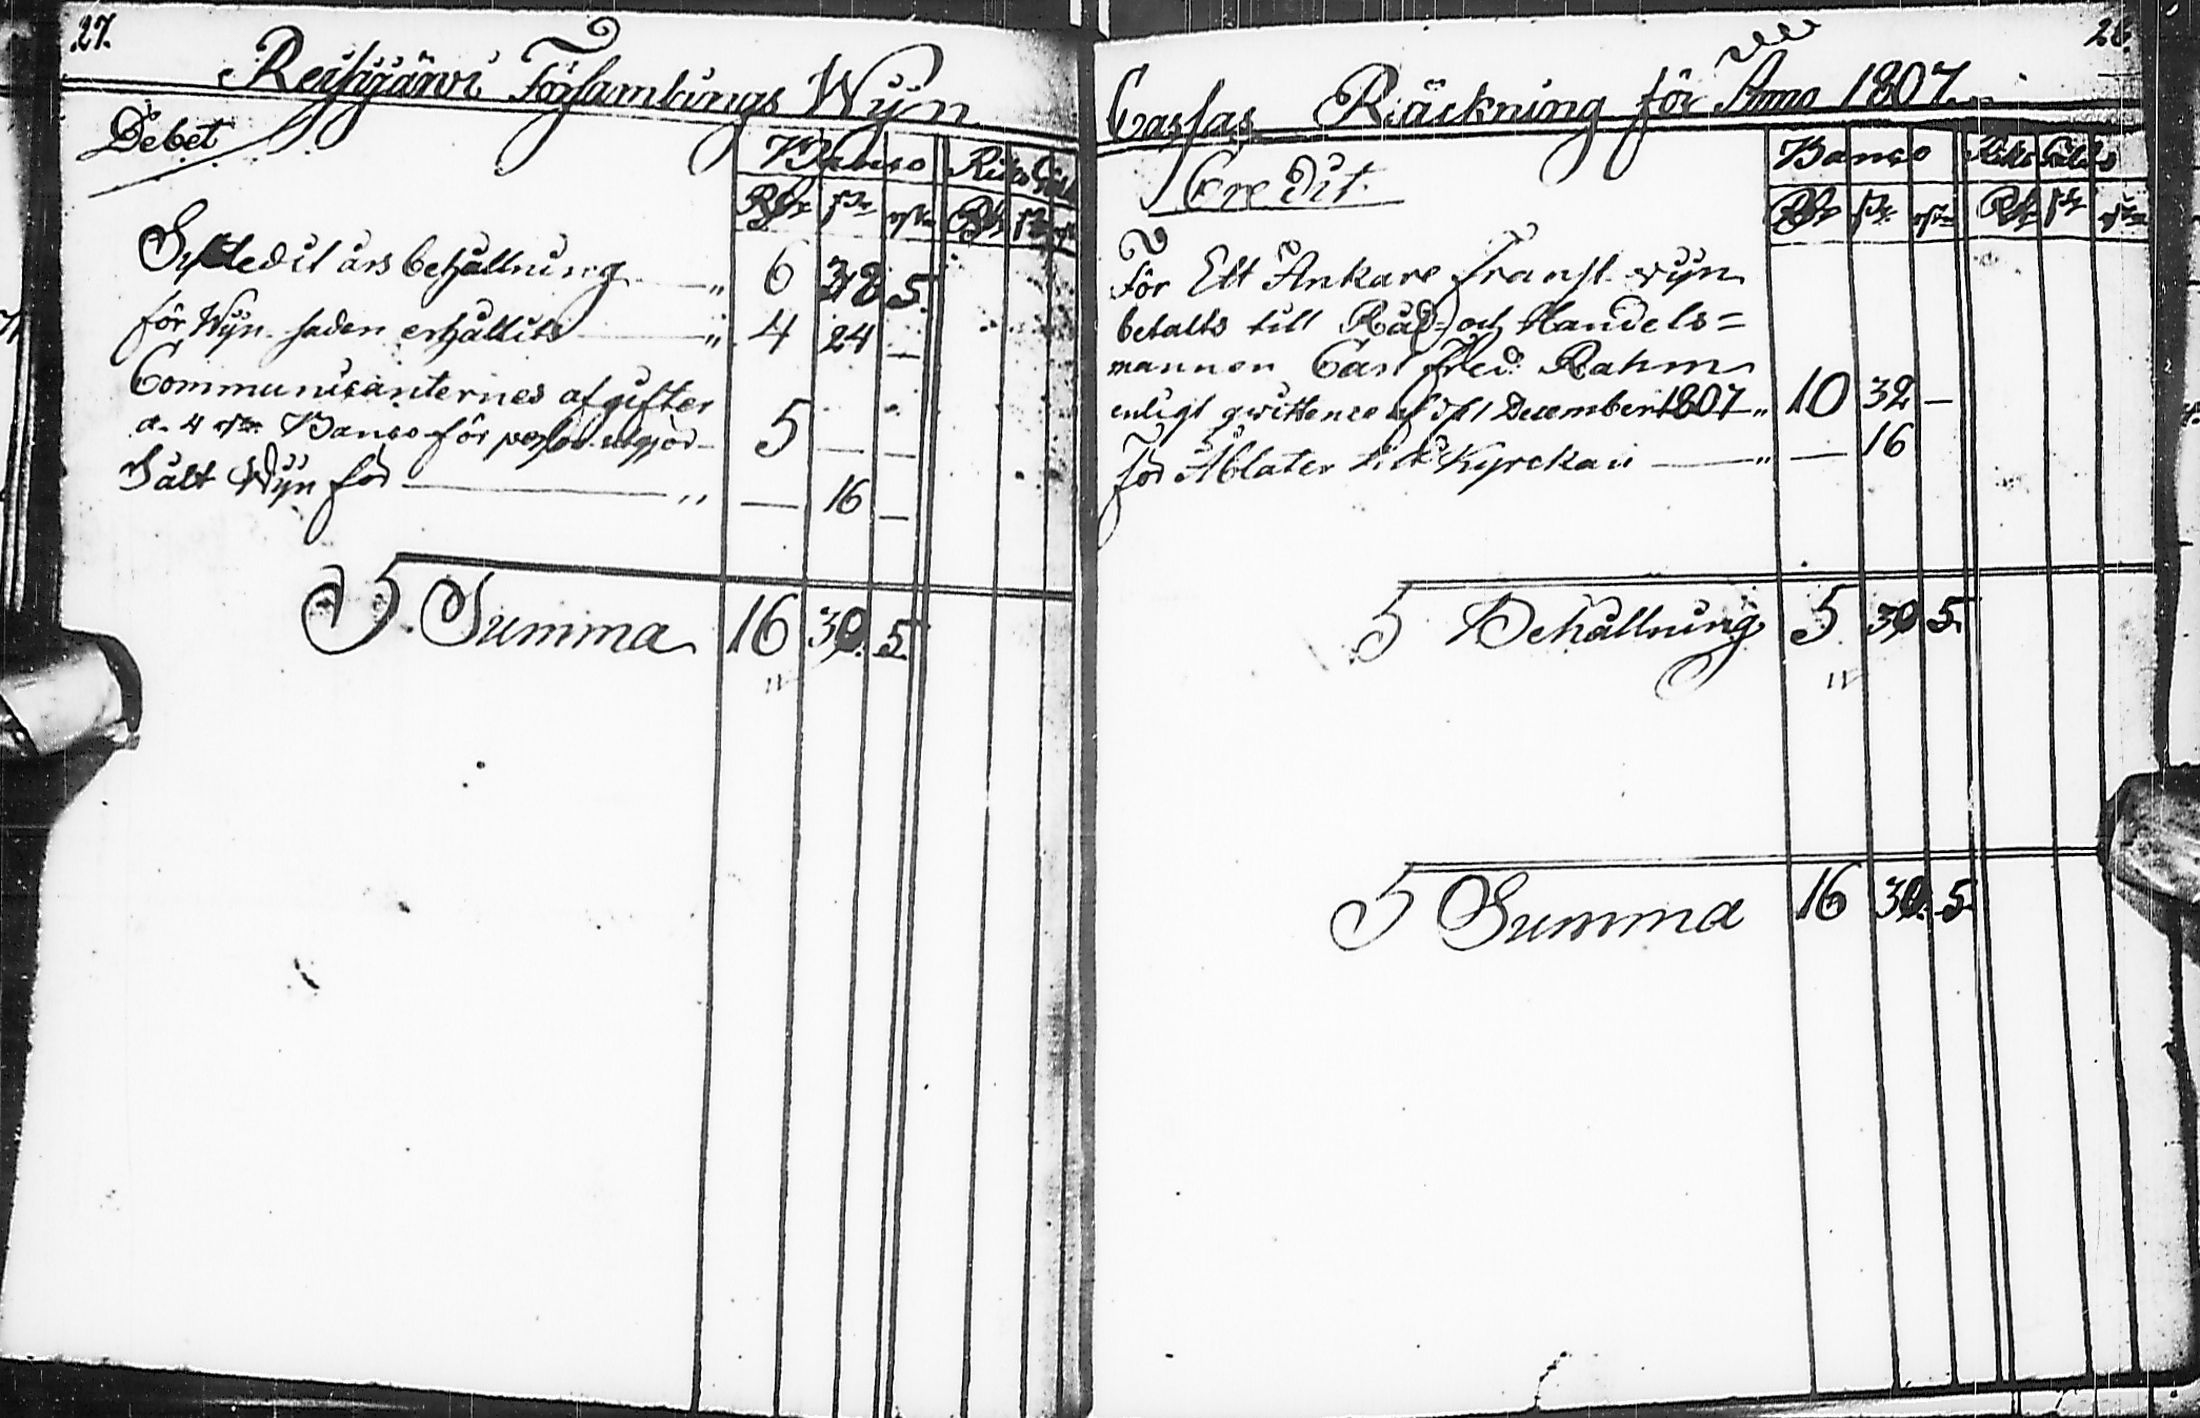 27.
Reisjärvi Församlings Wijn
Debet
Banco Riks Gäld
Rdr sk rst Rdr sk rst
år behållning " 6 38 5.
för Wijn saden erhållits " 4 24 —
Communicanternes afgifter
a. 4 rst. Banco för person utgjör 5 — —
Sålt Wijn för " — 16 —
Summa 16 30. 5.
28.
Cassas Räckning för Anno 1807.
Credit.
Banco Riks Gälds
Rdr sk rst Rdr sk rst
För Ett Ankare Fransk wijn
betalts till Råd- och Handels=
mannen Carl Fred: Rahm
enligt qwittence af d. 1 December 1807 " 10 32 —
för Ablater till Kyrckan " — 16
Behållning 5 30 5.
Summa 16 30. 5.